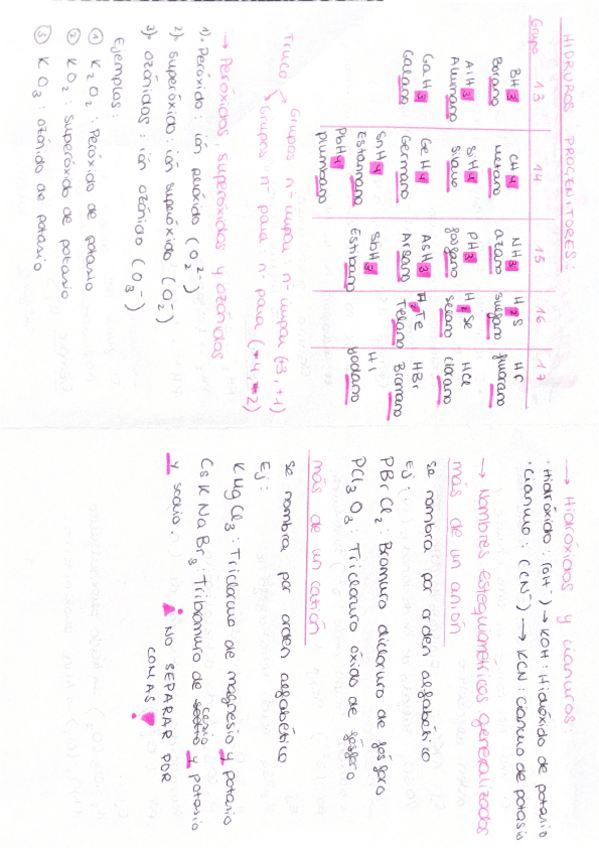 HIDRUROS PROGENITORES:
Grupo 13 14 15 16 17
BH3 CH4 NH3 H2S HF
Borano Metano azano sulfano fluorano
AlH3 SiH4 PH3 H2Se HCl
Alumano Silano fosfano selano clorano
GaH3 GeH4 AsH3 H2Te HBr
Galano Germano Arsano Telano Bromano
SnH4 SbH3 HI
Estannano Estibano Yodano
PbH4
plumbano
Truco → Grupos nº impar: nº impar (+3, +1)
→ Grupos nº para nº para (-4, -2)
→ Peróxidos, superóxidos y ozónidos
1). Peróxido: ión peróxido (O2²⁻)
2). superóxido: ión superóxido (O2⁻)
3). ozónidos: ión ozónido (O3⁻)
Ejemplos:
① K2O2: Peróxido de potasio
② KO2: superóxido de potasio
③ KO3: ozónido de potasio
→ Hidróxidos y cianuros:
· Hidróxido: (OH⁻) → KOH: Hidróxido de potasio
· Cianuro: (CN⁻) → KCN: cianuro de potasio
→ Nombres estequiométricos generalizados
más de un anión
se nombra por orden alfabético
Ej:
PBrCl2: Bromuro dicloruro de fósforo
PCl3O3: Tricloruro óxido de fósforo
más de un catión
se nombra por orden alfabético
Ej:
KMgCl3: Tricloruro de magnesio y potasio
CsKNaBr3: Tribromuro de cesio y potasio
y sodio
NO SEPARAR POR
COMAS